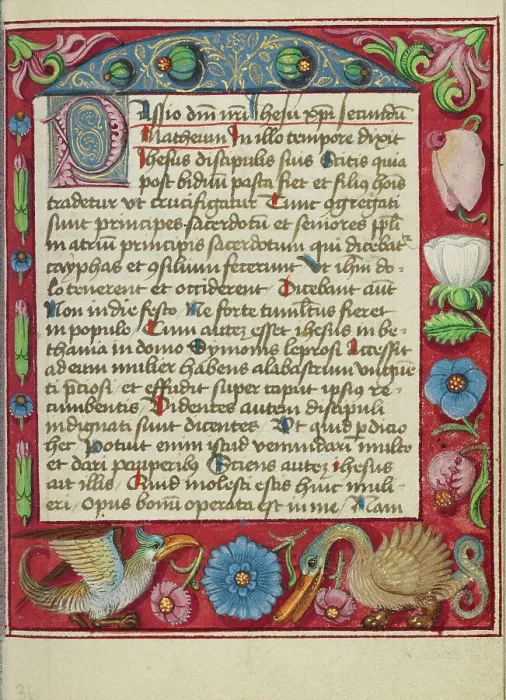 Passio dni nri Jhesu xpi secundu
Matheum In illo tempore dixit
Jhesus discipulis suis Scitis quia
post biduu pasca fiet et filiꝯ hois
tradetur vt crucifigatur Tunc ꝯgregati
sunt principes sacerdotu et seniores ppli
in atriu principis sacerdotum qui dicebatr
cayphas et ꝯsilium fecerunt Vt ihm do-
lo tenerent et occiderent Dicebant aut
Non in die festo Ne forte tumultus fieret
in populo Cum autez esset ihesus in be-
thania in domo Symonis leprosi Accessit
ad eum mulier habens alabastrum vngue-
ti pciosi et effudit super caput ipsius re-
cumbentis Videntes autem discipuli
indignati sunt dicentes Vt quid pdicio
hec Potuit enim istud venundari multo
et dari pauperibꝯ Sciens autez ihesus
ait illis Quid molesti estis huic muli-
eri Opus bonu operata est in me Nam